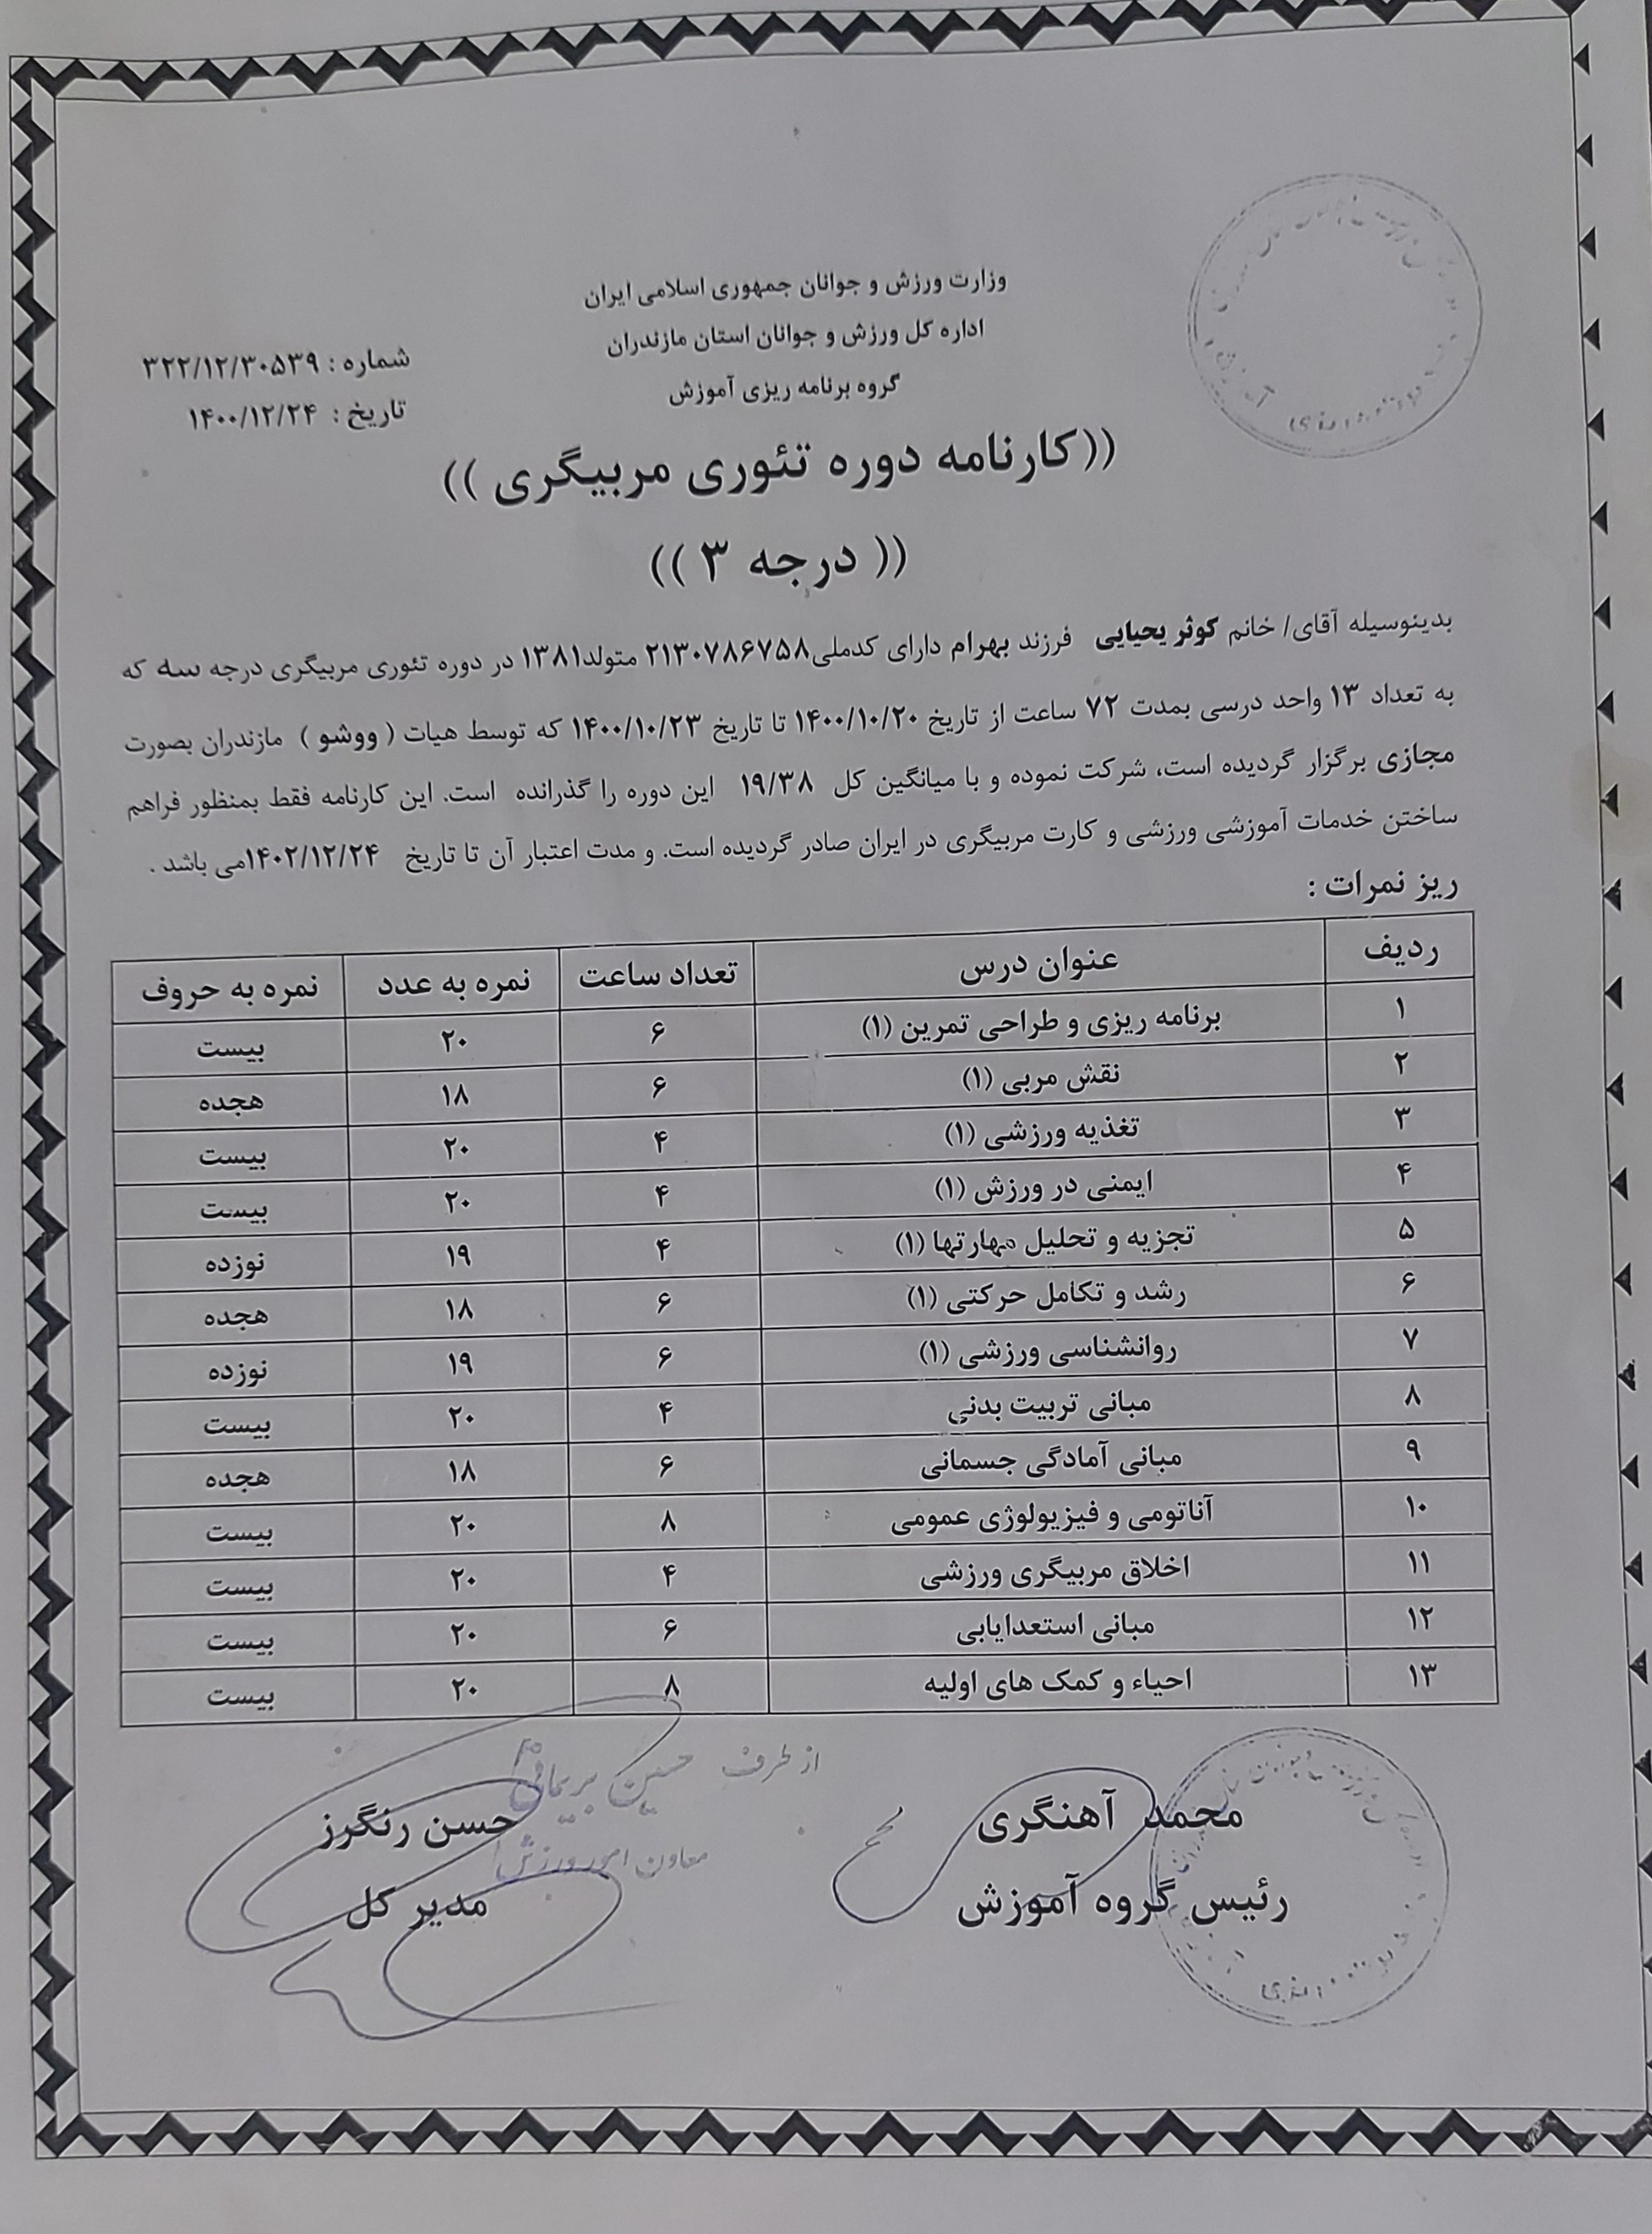 وزارت ورزش و جوانان جمهوری اسلامی ایران
اداره کل ورزش و جوانان استان مازندران
گروه برنامه ریزی آموزش
شماره : ۳۲۲/۱۲/۳۰۵۳۹
تاریخ : ۱۴۰۰/۱۲/۲۴
((کارنامه دوره تئوری مربیگری ))
(( درجه ۳ ))
بدینوسیله آقای/ خانم کوثر یحیایی فرزند بهرام دارای کدملی۲۱۳۰۷۸۶۷۵۸ متولد۱۳۸۱ در دوره تئوری مربیگری درجه سه که
به تعداد ۱۳ واحد درسی بمدت ۷۲ ساعت از تاریخ ۱۴۰۰/۱۰/۲۰ تا تاریخ ۱۴۰۰/۱۰/۲۳ که توسط هیات ( ووشو ) مازندران بصورت
مجازی برگزار گردیده است، شرکت نموده و با میانگین کل ۱۹/۳۸ این دوره را گذرانده است. این کارنامه فقط بمنظور فراهم
ساختن خدمات آموزشی ورزشی و کارت مربیگری در ایران صادر گردیده است. و مدت اعتبار آن تا تاریخ ۱۴۰۲/۱۲/۲۴می باشد .
ریز نمرات :
ردیف عنوان درس تعداد ساعت نمره به عدد نمره به حروف
۱ برنامه ریزی و طراحی تمرین (۱) ۶ ۲۰ بیست
۲ نقش مربی (۱) ۶ ۱۸ هجده
۳ تغذیه ورزشی (۱) ۴ ۲۰ بیست
۴ ایمنی در ورزش (۱) ۴ ۲۰ بیست
۵ تجزیه و تحلیل مهارتها (۱) ۴ ۱۹ نوزده
۶ رشد و تکامل حرکتی (۱) ۶ ۱۸ هجده
۷ روانشناسی ورزشی (۱) ۶ ۱۹ نوزده
۸ مبانی تربیت بدنی ۴ ۲۰ بیست
۹ مبانی آمادگی جسمانی ۶ ۱۸ هجده
۱۰ آناتومی و فیزیولوژی عمومی ۸ ۲۰ بیست
۱۱ اخلاق مربیگری ورزشی ۴ ۲۰ بیست
۱۲ مبانی استعدایابی ۶ ۲۰ بیست
۱۳ احیاء و کمک های اولیه ۸ ۲۰ بیست
از طرف حسین بریمانی
معاون امور ورزش
محمد آهنگری
رئیس گروه آموزش
حسن رنگرز
مدیر کل